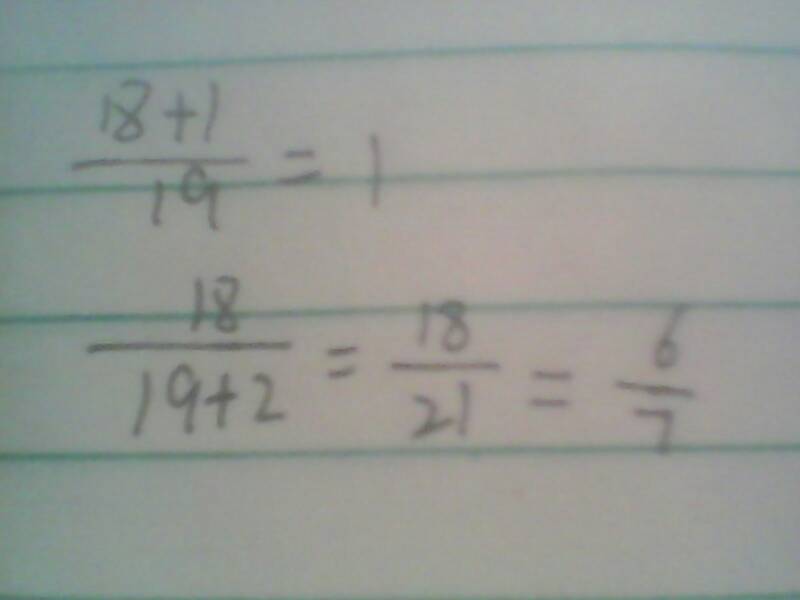 18+1
19
= 1
18
19+2
=
18
21
=
6
7